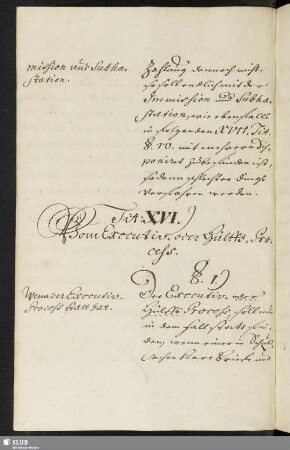 mission und Subha-
station.
Zahlung dennoch nicht,
so soll endlich mit der
Immission und Subha-
station, wie ebenfalls
in folgenden XVII. Tit.
§. 10. mit mehrern dis-
poniret zu befinden ist,
schlechter dings
verfahren werden.
Tit: XVI.
Vom Executiv- oder Hülffs-Pro-
cess.
§. 1.
Wenn der Executiv-
Process statt hat.
Der Executiv- oder
Hülffs-Process soll nur
in dem Fall statt fin-
den, wenn einer in Schul-
klare Briefe und
SLUB